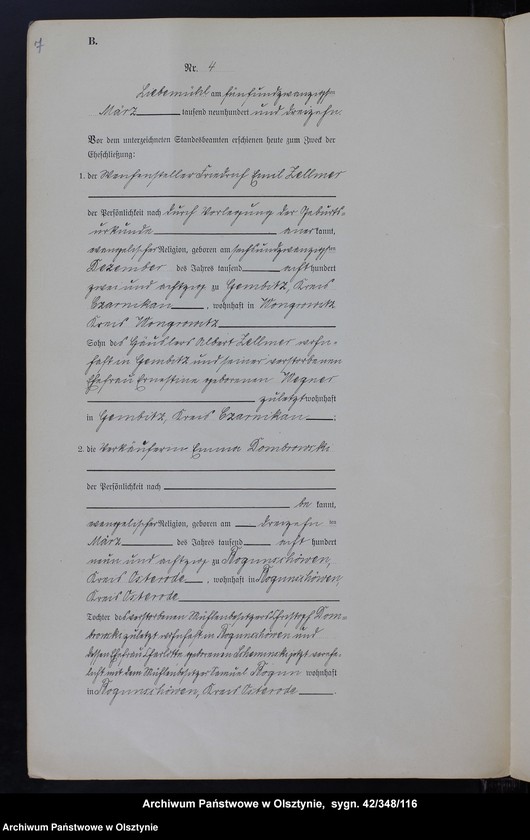 7
B.
Nr. 4
Liebemühl am fünfundzwanzigsten
März tausend neunhundert und dreizehn.
Vor dem unterzeichneten Standesbeamten erschienen heute zum Zweck der
Eheschließung:
1. der Weichensteller Friedrich Emil Zellmer
der Persönlichkeit nach durch Vorlegung der Geburts-
urkunde anerkannt,
evangelischer Religion, geboren am sechsundzwanzigsten
Dezember des Jahres tausend acht hundert
zwei und achtzig zu Gembitz, Kreis
Czarnikau, wohnhaft in Wongrowitz
Kreis Wongrowitz
Sohn des Häuslers Albert Zellmer wohn-
haft in Gembitz und seiner verstorbenen
Ehefrau Ernestine geborenen Wegner
zuletzt wohnhaft
in Gembitz, Kreis Czarnikau;
2. die Verkäuferin Emma Dombrowski
der Persönlichkeit nach
be kannt,
evangelischer Religion, geboren am dreizehn ten
März des Jahres tausend acht hundert
neun und achtzig zu
Kreis Osterode, wohnhaft in
Kreis Osterode
Tochter des verstorbenen Mühlenbesitzers Christoph Dom-
browski zuletzt wohnhaft in und
dessen Ehefrau Charlotte geborenen jetzt verehe-
licht mit dem Mühlenbesitzer Samuel wohnhaft
in Kreis Osterode.
Archiwum Państwowe w Olsztynie, sygn. 42/348/116
Archiwum Państwowe w Olsztynie